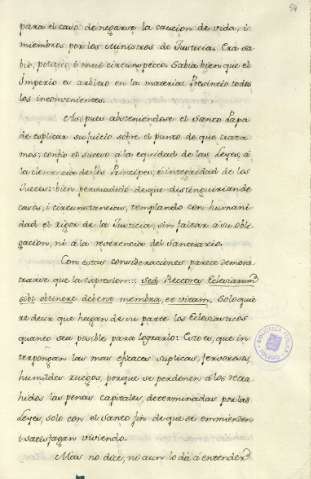 54
para el caso de negarse la caucion de vida, i
miembros por los Ministros de Justicia. Era sa-
bio, politico, i mui circunspecto. Sabia bien que el
Imperio es arbitro en la materia: Previnolo todos
los inconvenientes.
el pues absteniendose el Santo Papa
de esplicar su juicio sobre el punto de que trata-
mos; confió el suceso á la equidad de las Leyes, á
la clemencia de los Principes, é integridad de los
Jueces: bien persuadido de que distinguirian de
casos, i circunstancias, templando con humani-
dad el rigor de la Justicia, sin faltar á su obli-
gacion, ni á la reverencia del Santuario.
Con estas consideraciones, parece demons-
trarse que la espresion: sed Rectores Ecclesiarum
obtinere debere membra, et vitam. Solo quie-
re decir que hagan de su parte los Eclesiasticos
quanto sea posible para lograrlo: Esto es, que in-
terpongan las mas eficaces suplicas, fervorosos,
humildes ruegos, porque se perdonen á los retra-
hidos las penas capitales, determinadas por las
Leyes, solo con el santo fin de que se enmienden
i satisfagan viviendo.
Mas no dice, ni aun lo dá á entender